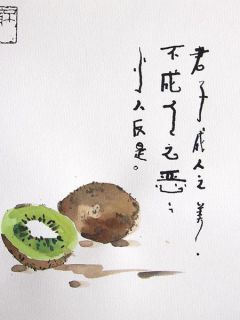 君子成人之美。
不成人之恶；
小人反是。